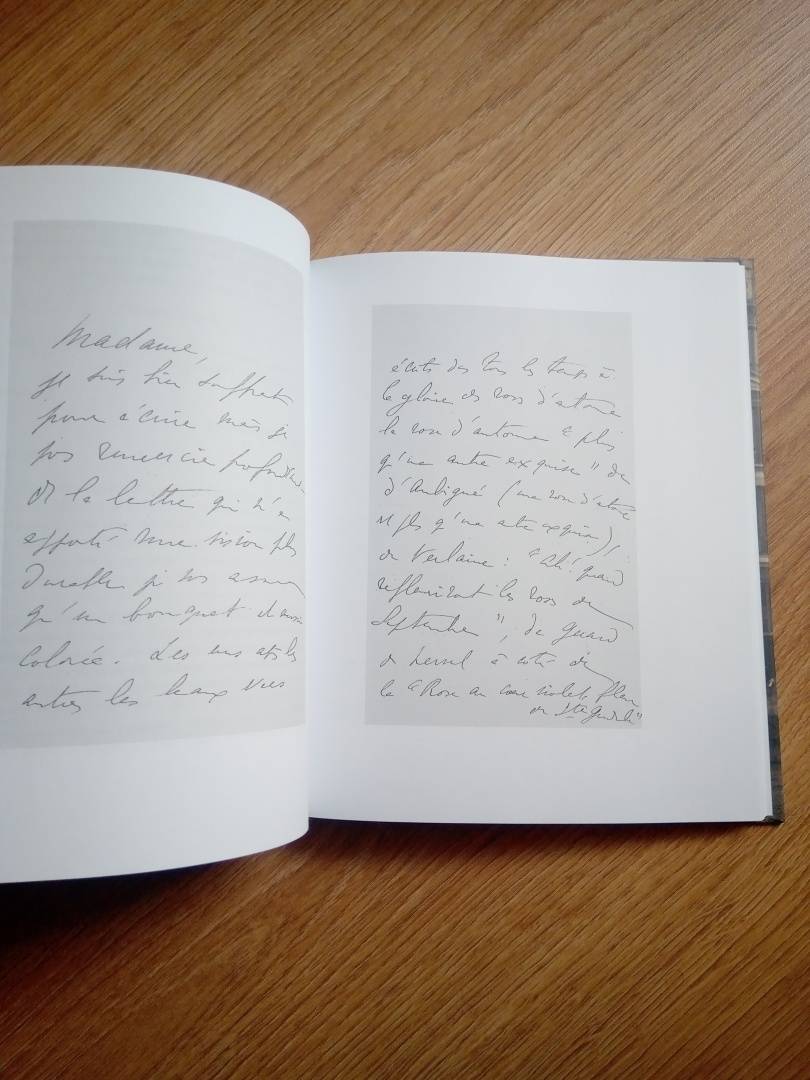 Madame,
je suis bien souffrant
pour écrire mais je
vous remercie profondément
de la lettre qui m'a
apporté une vision plus
durable je vous assure
qu'un bouquet et aussi
colorée. Les uns après les
autres les beaux vers
écrits dans tous les temps à
la gloire des roses d'automne
la rose d'automne "plus
qu'une autre exquise" de
d'Aubigné (une rose d'automne
est plus qu'une autre exquise)!
de Verlaine : "Ah! quand
refleuriront les roses de
Septembre", de Gerard
de Nerval à côté de
la "Rose au cœur violet fleur
de Ste Gudule"